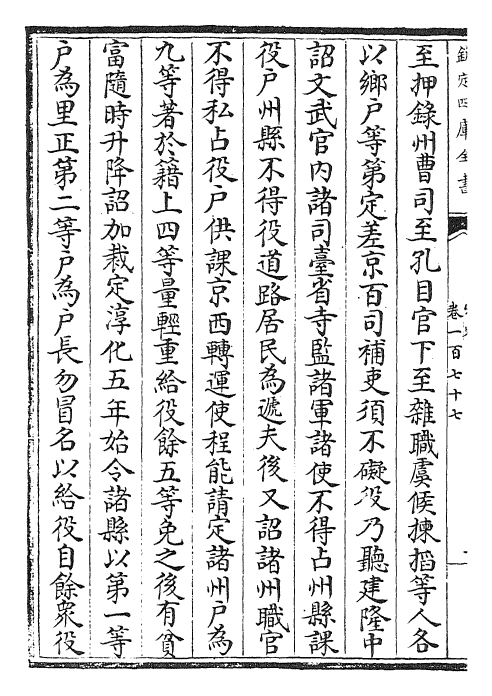 欽定四庫全書
卷一百七十七
至押錄州曹司至孔目官下至雜職虞候揀搯等人各
以鄉户等第定差京百司補吏須不礙役乃聽建隆中
詔文武官内諸司臺省寺監諸軍諸使不得占州縣課
役户州縣不得役道路居民為遞夫後又詔諸州職官
不得私占役户供課京西轉運使程能請定諸州户為
九等著於籍上四等量輕重給役餘五等免之後有貧
富隨時升降詔加裁定淳化五年始令諸縣以第一等
户為里正第二等户為户長勿冒名以給役自餘衆役